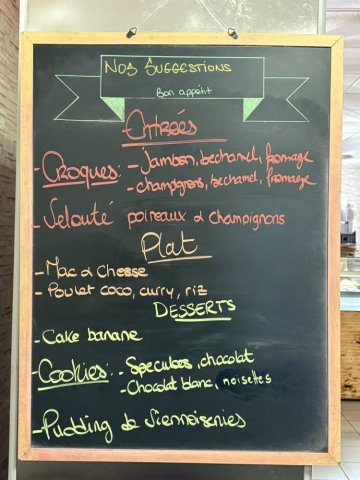 Nos Suggestions
Bon appétit
Entrées
- Croques: - Jambon, bechamel, fromage
- champignons, bechamel, fromage
- Velouté poireaux & champignons
Plat
- Mac & Cheese
- Poulet coco, curry, riz
DESSERTS
- Cake banane
- Cookies: - Speculoos, chocolat
- Chocolat blanc, noisettes
- Pudding de Viennoiseries